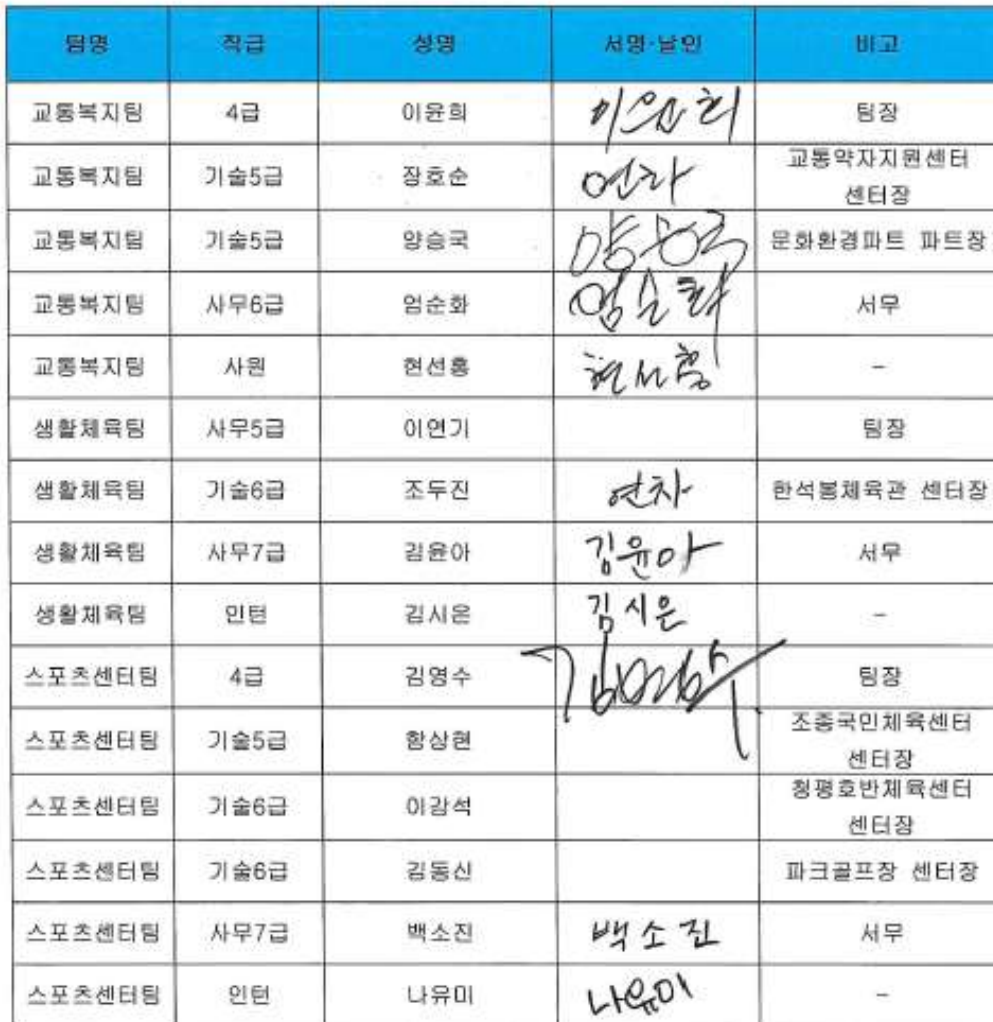 팀명 직급 성명 서명·날인 비고
교통복지팀 4급 이윤희 이윤희 팀장
교통복지팀 기술5급 장호순 연차 교통약자지원센터
센터장
교통복지팀 기술5급 양승국 양승국 문화환경파트 파트장
교통복지팀 사무6급 엄순화 엄순화 서무
교통복지팀 사원 현선홍 현선홍 -
생활체육팀 사무5급 이연기 팀장
생활체육팀 기술6급 조두진 연차 한석봉체육관 센터장
생활체육팀 사무7급 김윤아 김윤아 서무
생활체육팀 인턴 김시은 김시은 -
스포츠센터팀 4급 김영수 김영수 팀장
스포츠센터팀 기술5급 함상현 조종국민체육센터
센터장
스포츠센터팀 기술6급 이감석 청평호반체육센터
센터장
스포츠센터팀 기술6급 김동신 파크골프장 센터장
스포츠센터팀 사무7급 백소진 백소진 서무
스포츠센터팀 인턴 나유미 나유미 -